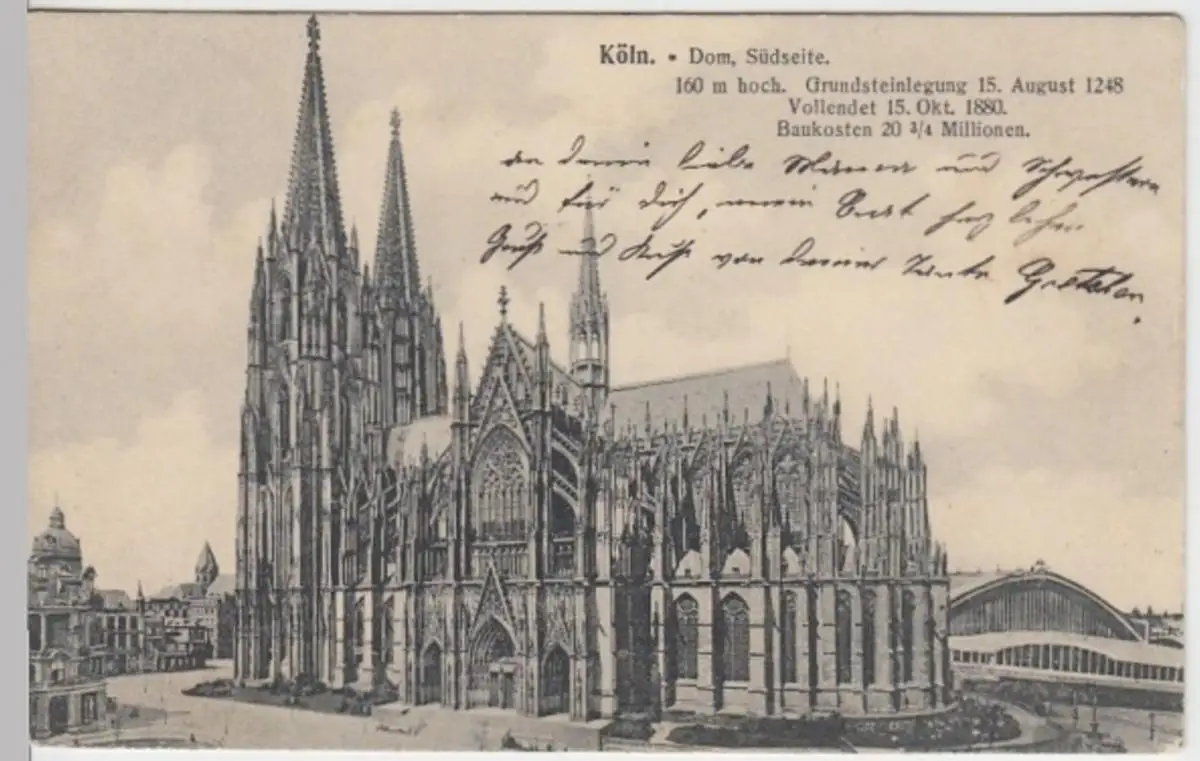 Köln. • Dom, Südseite.
160 m hoch. Grundsteinlegung 15. August 1248
Vollendet 15. Okt. 1880.
Baukosten 20 3/4 Millionen.
an deine liebe Mama und Schwestern
und für dich, mein
Gruß und Kuß von deiner Tante Gretchen.